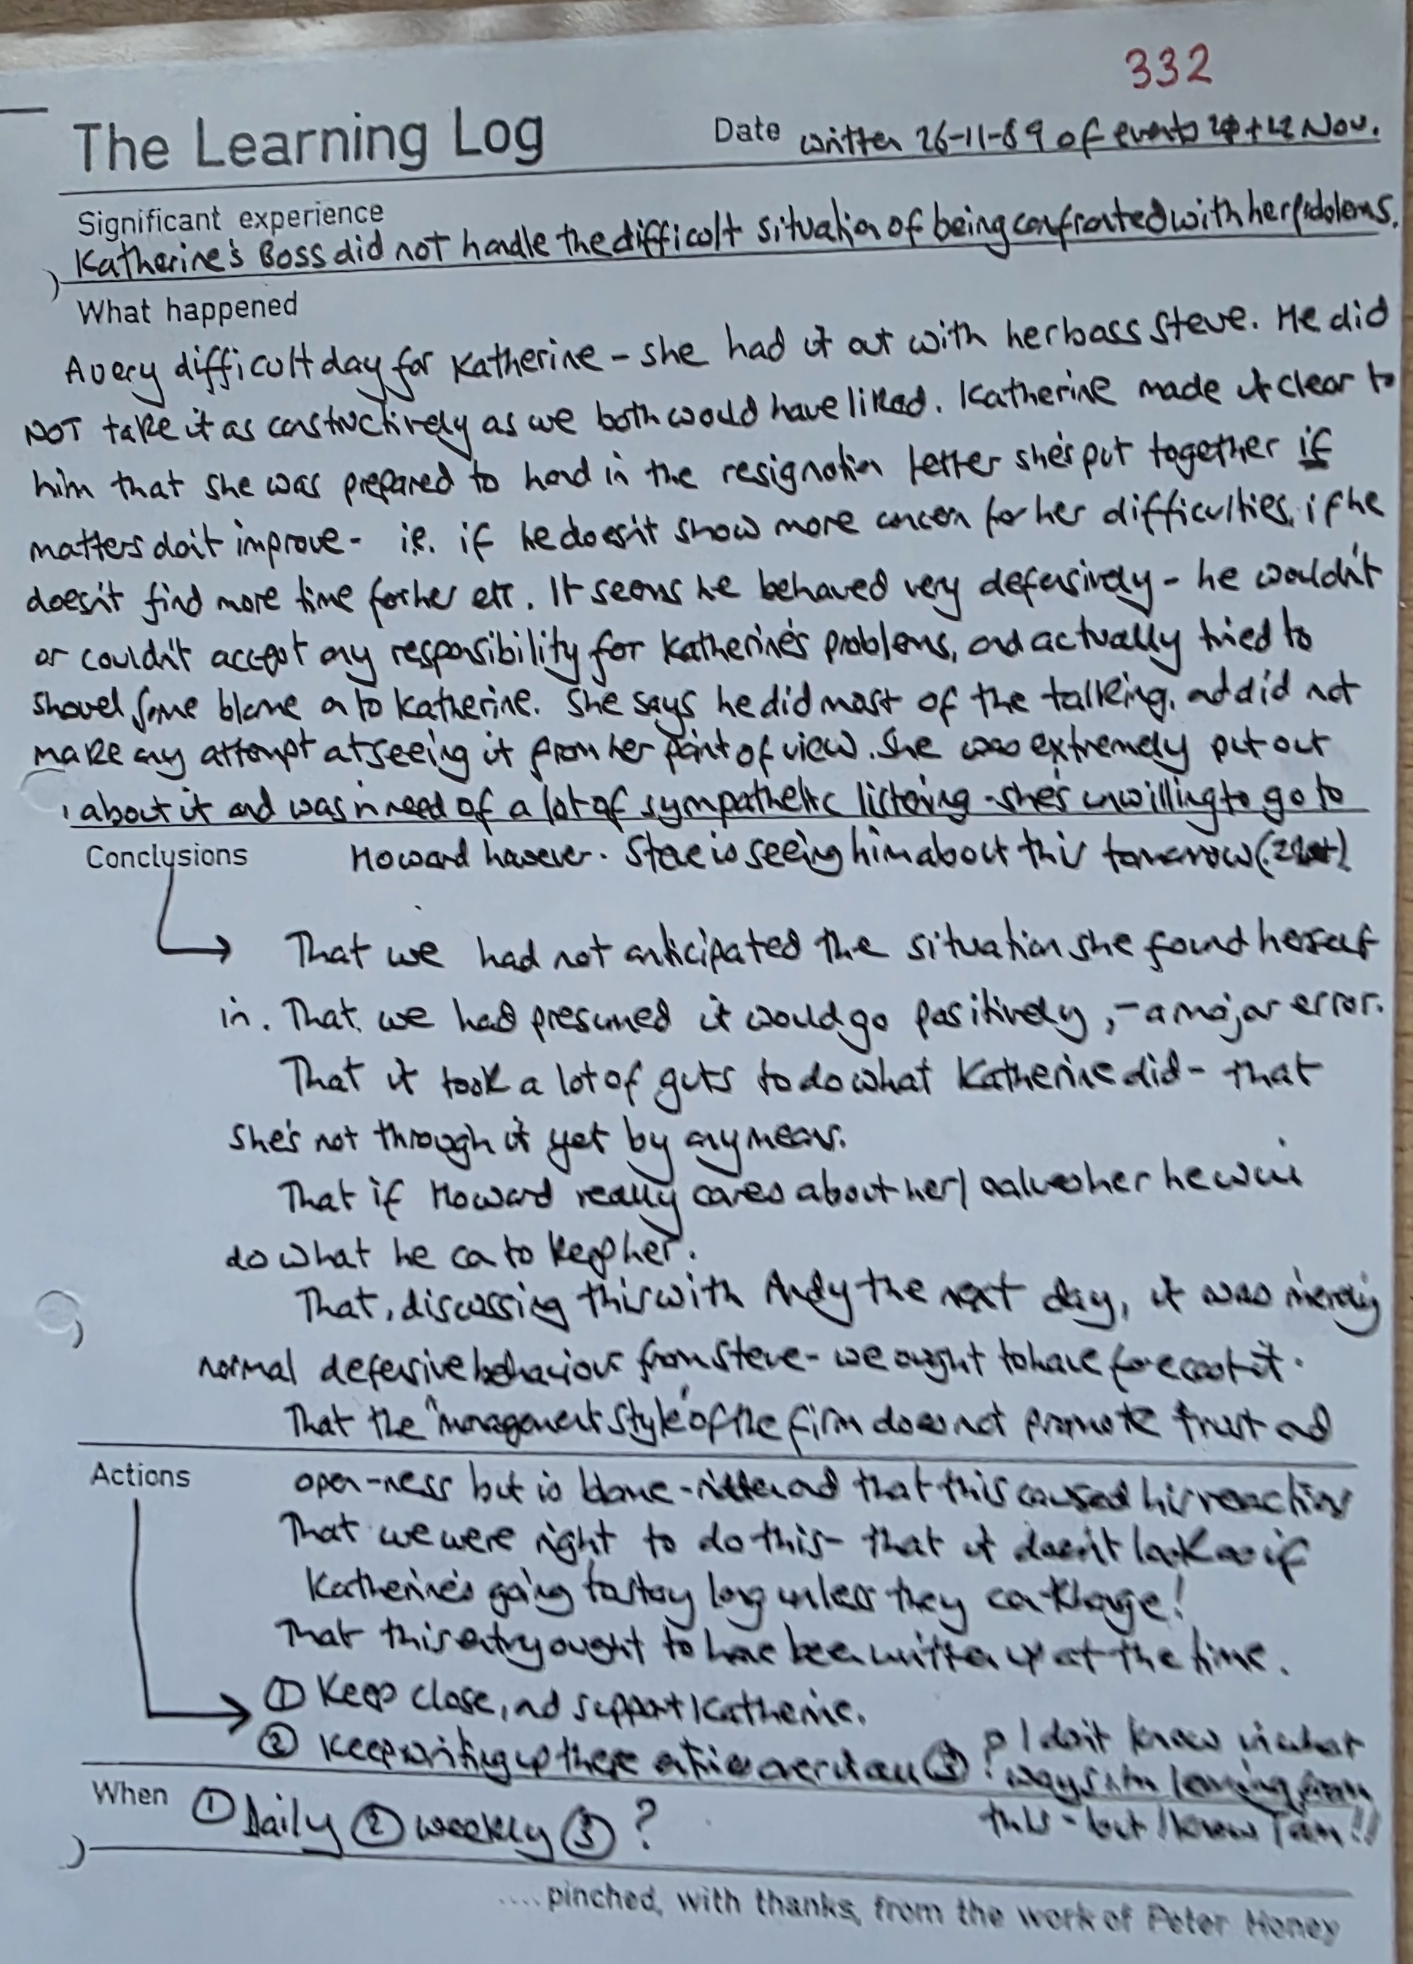 332
The Learning Log
Date written 26-11-89 of events + 22 Nov.
Significant experience
Katherine's Boss did not handle the difficult situation of being confronted with her problems.
What happened
A very difficult day for Katherine - she had it out with her boss Steve. He did
NOT take it as constructively as we both would have liked. Katherine made it clear to
him that she was prepared to hand in the resignation letter she's put together if
matters don't improve - i.e. if he doesn't show more concern for her difficulties, if he
doesn't find more time for her etc. It seems he behaved very defensively - he wouldn't
or couldn't accept any responsibility for Katherine's problems, and actually tried to
shovel some blame on to Katherine. She says he did most of the talking, and did not
make any attempt at seeing it from her point of view. She was extremely put out
about it and was in need of a lot of sympathetic listening - she's unwilling to go to
Conclusions
Howard however. Steve is seeing him about this tomorrow
That we had not anticipated the situation she found herself
in. That we had presumed it would go positively, - a major error.
That it took a lot of guts to do what Katherine did - that
she's not through it yet by any means.
That if Howard really cares about her/values her he will
do what he can to keep her.
That, discussing this with Andy the next day, it was merely
normal defensive behaviour from Steve - we ought to have forecast it.
That the "management style" of the firm does not promote trust and
Actions
open-ness but is blame-ridden and that this caused his reaction
That we were right to do this - that it doesn't look as if
Katherine's going to stay long unless they can change!
That this entry ought to have been written up at the time.
① Keep close, and support Katherine.
② Keep writing up these entries ③ ? I don't know in what
ways I'm learning from
this - but I know I am!!
When
① Daily ② weekly ③ ?
.... pinched, with thanks, from the work of Peter Honey